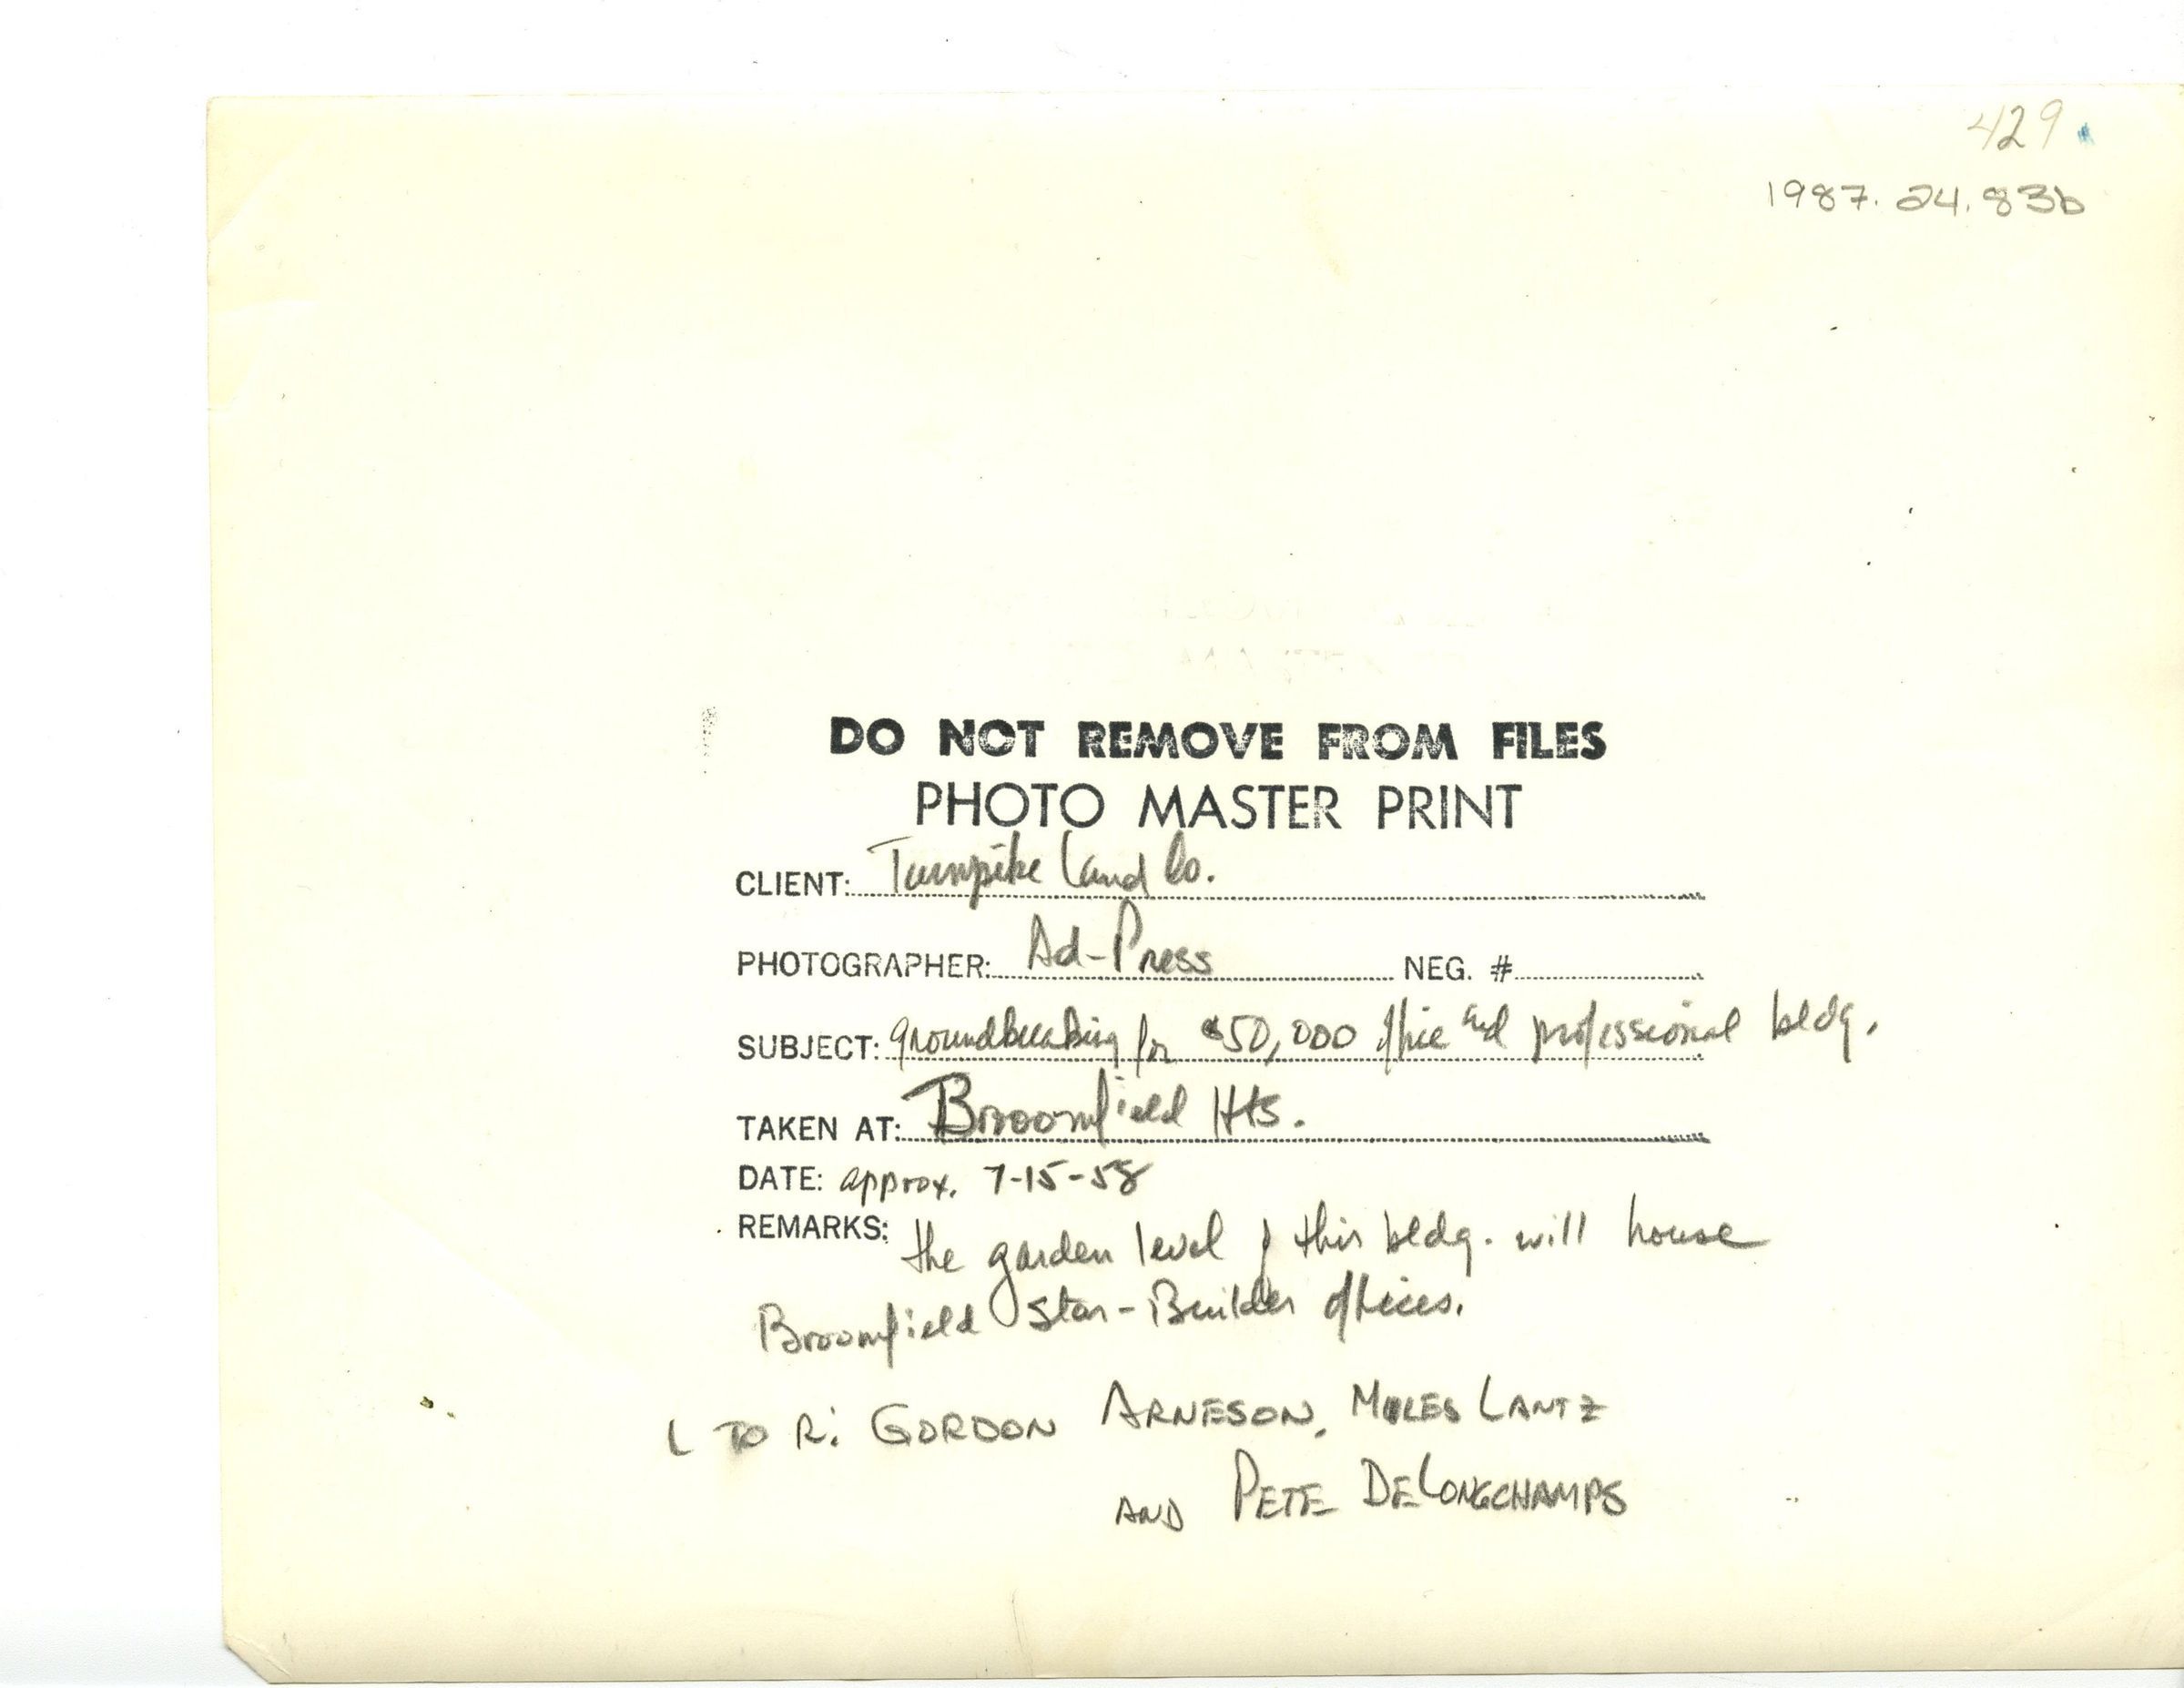 429
1987.24.83b
DO NOT REMOVE FROM FILES
PHOTO MASTER PRINT
CLIENT: Turnpike Land Co.
PHOTOGRAPHER: Ad-Press NEG. #
SUBJECT: groundbreaking for $50,000 office and professional bldg.
TAKEN AT: Broomfield Hts.
DATE: approx. 7-15-58
REMARKS: the garden level of this bldg. will house
Broomfield Star-Builder offices.
L TO R: GORDON ARNESON, MILES LANTZ
AND PETE DELONGCHAMPS